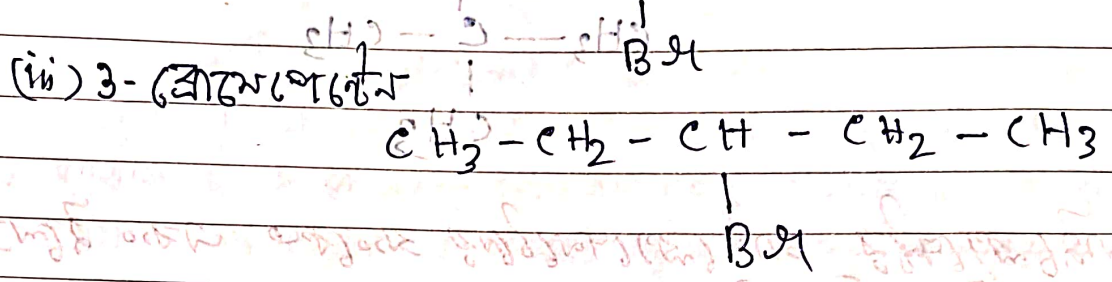 Br
(iii) 3-ব্রোমোপেন্টেন
CH3 – CH2 – CH – CH2 – CH3
|
Br